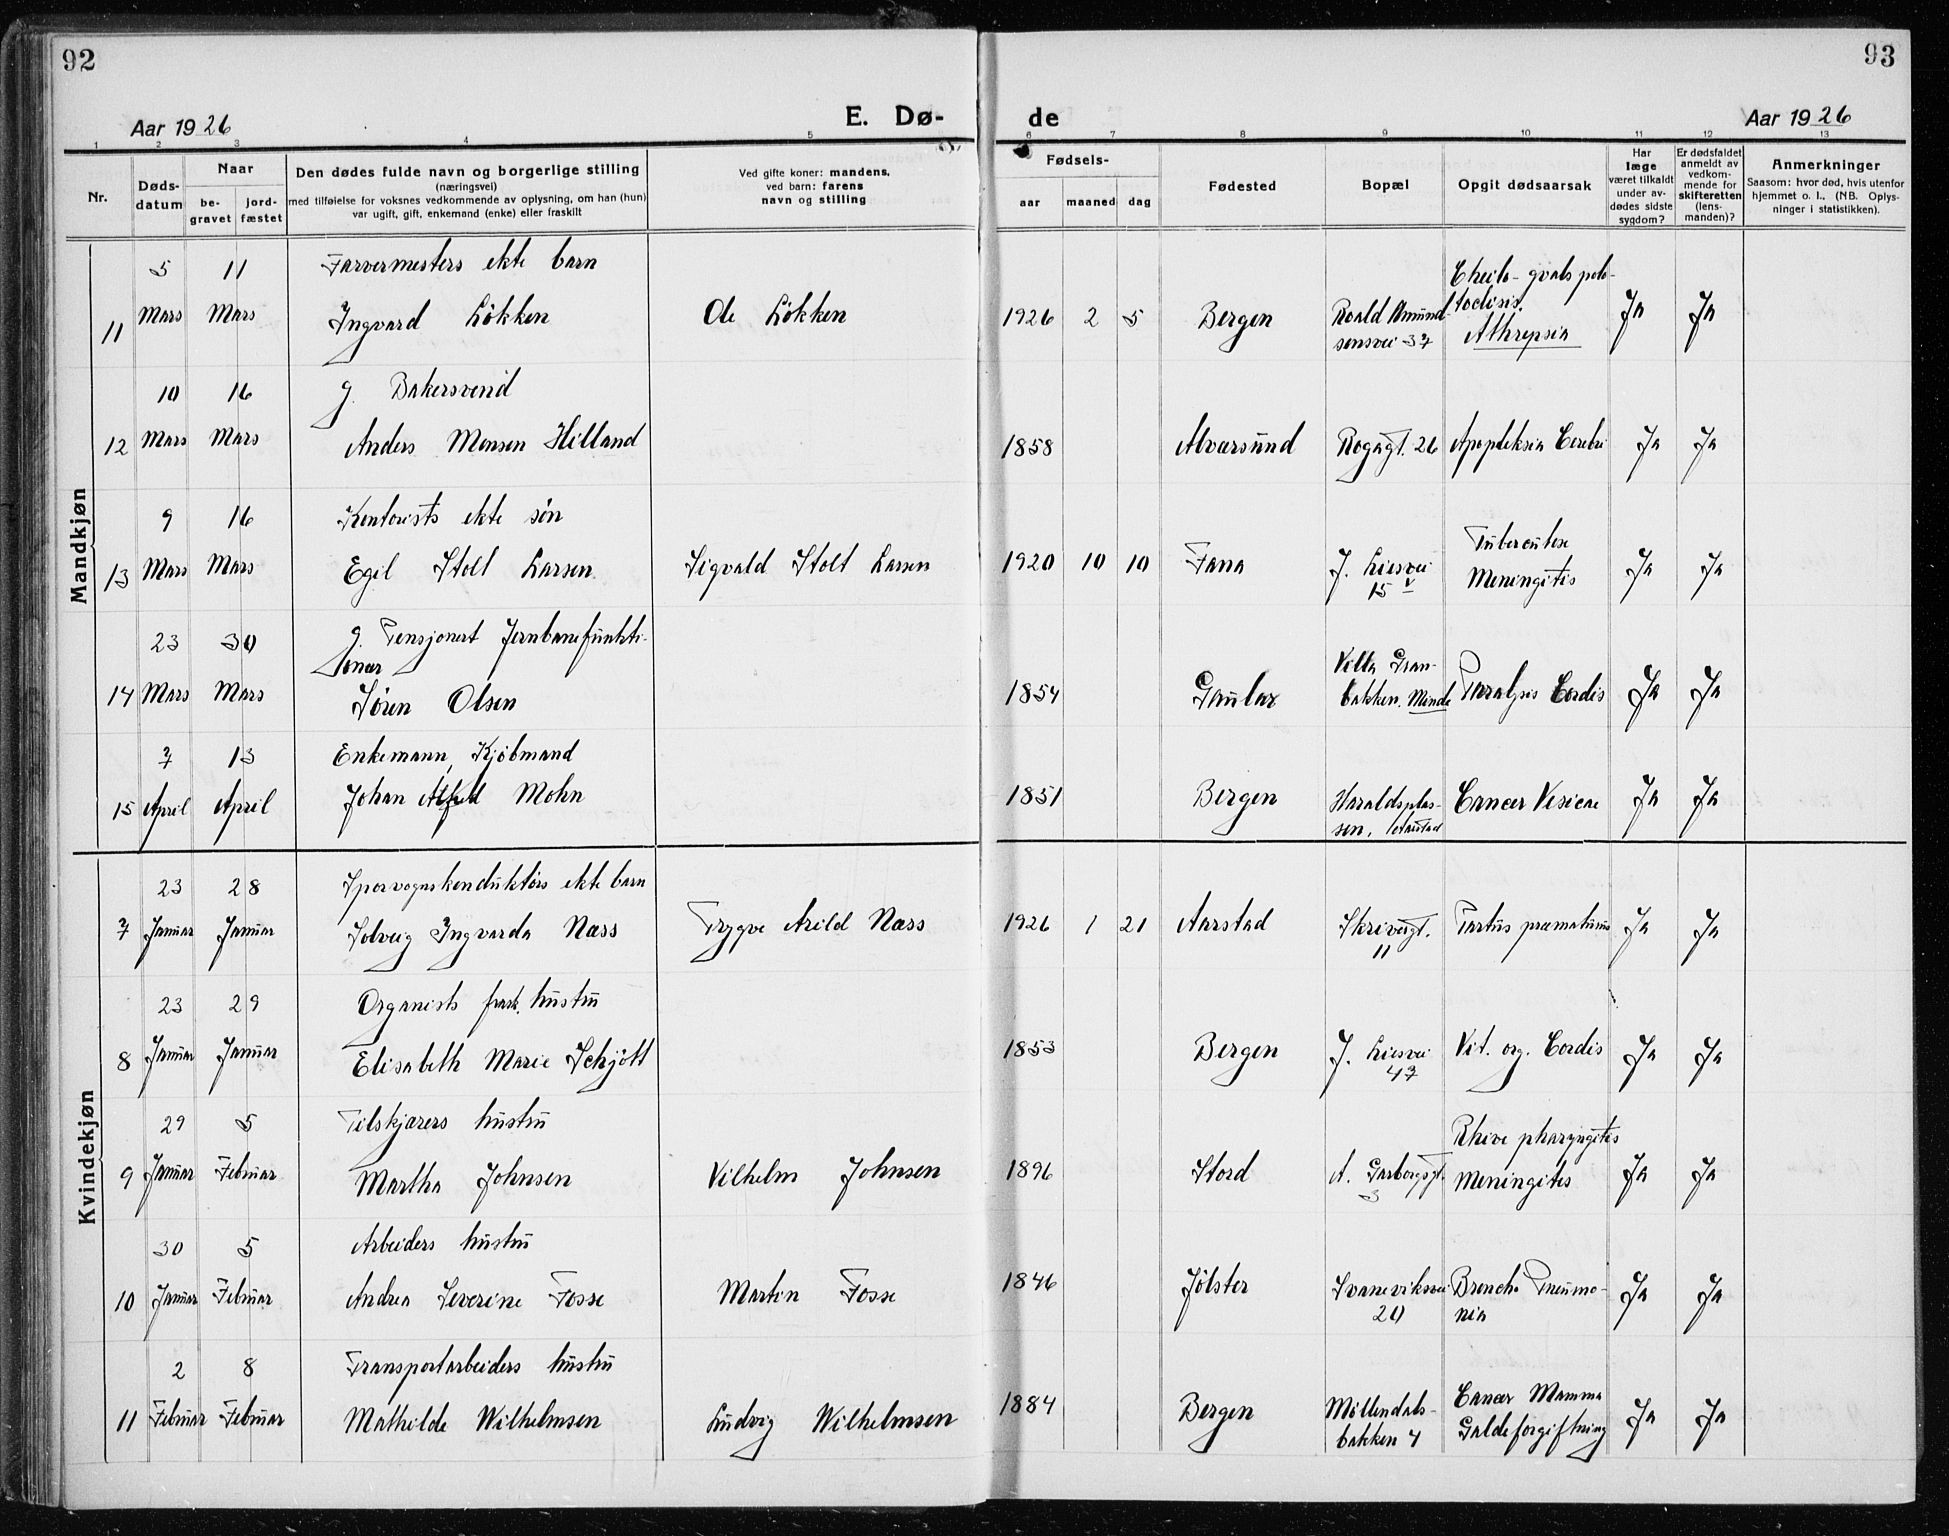 92
93
Aar 1926
E. Dø-
de
Aar 1926
1 2 3 4 5 6 7 8 9 10 11 12 13
Nr.
Døds-
datum
Naar
be-
gravet
jord-
fæstet
Den dødes fulde navn og borgerlige stilling
(næringsvei)
med tilføielse for voksnes vedkommende av oplysning, om han (hun)
var ugift, gift, enkemand (enke) eller fraskilt
Ved gifte koner: mandens,
ved barn: farens
navn og stilling
Fødsels-
aar
maaned
dag
Fødested
Bopæl
Opgit dødsaarsak
Har
læge
været tilkaldt
under av-
dødes sidste
sygdom?
Er dødsfaldet
anmeldt av
vedkom-
mende for
skifteretten
(lens-
manden)?
Anmerkninger
Saasom: hvor død, hvis utenfor
hjemmet o. l., (NB. Oplys-
ninger i statistikken).
Mandkjøn
5 11 Farvermesters ekte barn
11 Mars Mars Ingvard Løkken Ole Løkken 1926 2 5 Bergen Roald Amund-
sensvei 37
Athrepsia Ja Ja
10 16 g. Bakersvend
12 Mars Mars Anders Monsen Hilland 1858 Alvarsund Rogagt. 26 Apopleksia Cerebri Ja Ja
9 16 Kontorists ekte søn
13 Mars Mars Egil Stolt Larsen Sigvald Stolt Larsen 1920 10 10 Fana J. Liesvei
15 v
Tuberculose
Meningitis Ja Ja
23 30 g. Pensjonert Jernbanefunkti-
onær
14 Mars Mars Søren Olsen 1854 Gaular Villa Gran-
bakken. Minde Paralysis Cordis Ja Ja
7 13 Enkemann, Kjøbmand
15 April April Johan Alfred Mohn 1851 Bergen Haraldsplas-
sen, Aarstad Cancer Vesicae Ja Ja
Kvindekjøn
23 28 Sporvognskonduktørs ekte barn
7 Januar Januar Solveig Ingvarda Næss Trygve Arild Næss 1926 1 21 Aarstad Skrivergt.
11 Partus præmaturus Ja Ja
23 29 Organists frask. hustru
8 Januar Januar Elisabeth Marie Schjøtt 1853 Bergen J. Liesvei
47 Vit. org. Cordis Ja Ja
29 5 Filskjærers hustru
9 Januar Februar Martha Johnsen Vilhelm Johnsen 1896 Stord A. Garborgsgt.
3
pharyngitis
Meningitis Ja Ja
30 5 Arbeiders hustru
10 Januar Februar Andrea Severine Fosse Martin Fosse 1846 Jølster Svaneviksvei
20 Broncho Pneumo-
nia Ja Ja
2 8 Transportarbeiders hustru
11 Februar Februar Mathilde Wilhelmsen Ludvig Wilhelmsen 1884 Bergen Møllendals-
bakken 4 Cancer Mamma
Galdeforgiftning Ja Ja